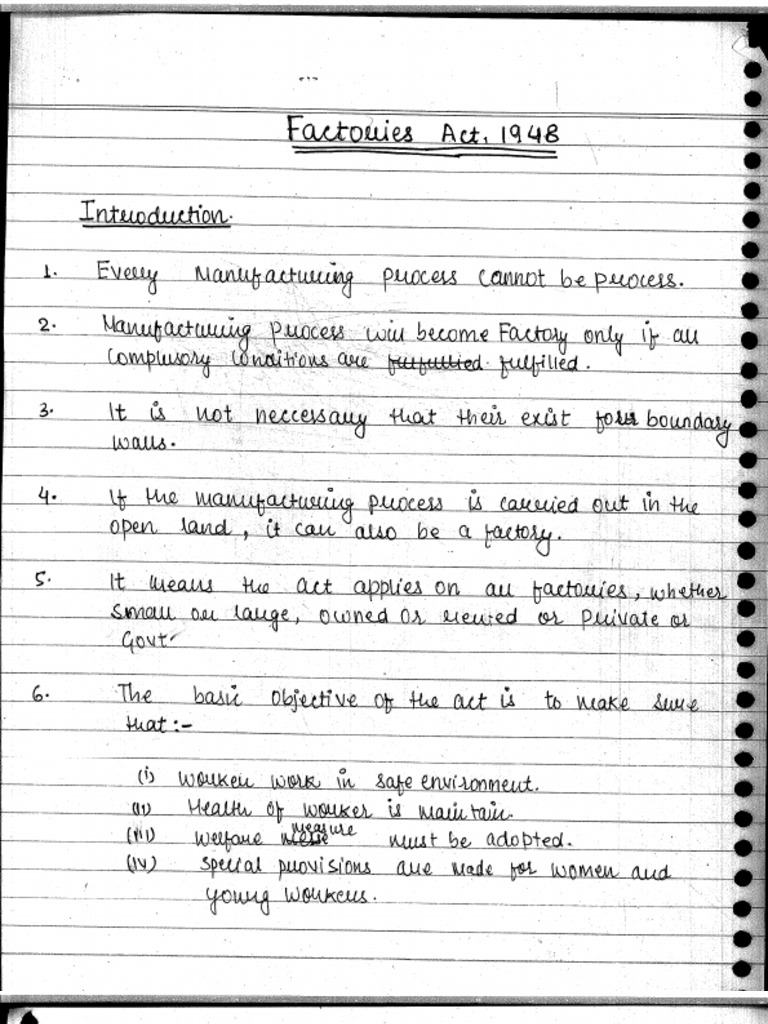 Factories Act, 1948
Introduction.
1. Every Manufacturing process cannot be process.
2. Manufacturing process will become Factory only if all
complusory conditions are fulfilled.
3. It is not neccessary that their exist four boundary
walls.
4. If the manufacturing process is carried out in the
open land, it can also be a factory.
5. It means the act applies on all factories, whether
small or large, owned or rented or private or
Govt.
6. The basic objective of the act is to make sure
that:-
(i) worker work in safe environment.
(ii) Health of worker is maintain.
(iii) welfare measure must be adopted.
(iv) special provisions are made for women and
young workers.